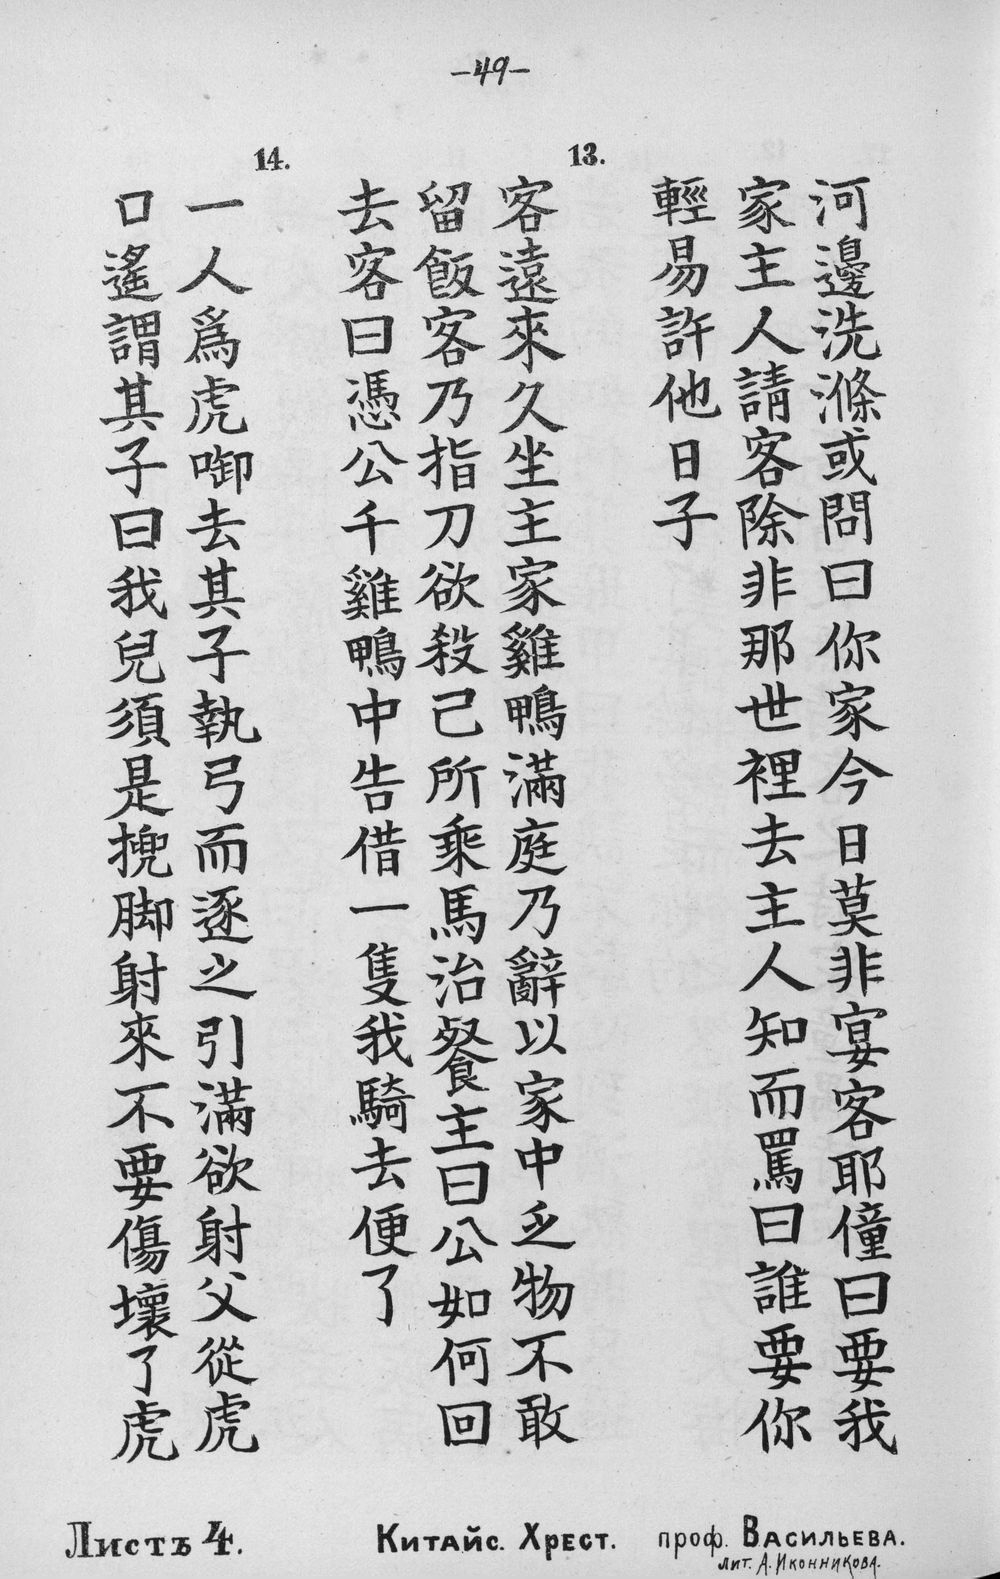 —49—
河邊洗滌或問曰你家今日莫非宴客耶僮曰要我
家主人請客除非那世裡去主人知而罵曰誰要你
輕易許他日子
13.
客遠來久坐主家雞鴨滿庭乃辭以家中乏物不敢
留飯客乃指刀欲殺己所乘馬治餐主曰公如何回
去客曰憑公千雞鴨中告借一隻我騎去便了
14.
一人爲虎啣去其子執弓而逐之引滿欲射父從虎
口遙謂其子曰我兒須是㨘脚射來不要傷壞了虎
Листъ 4.
Китайс. Хрест. проф. Васильева.
лит. А. Иконникова.